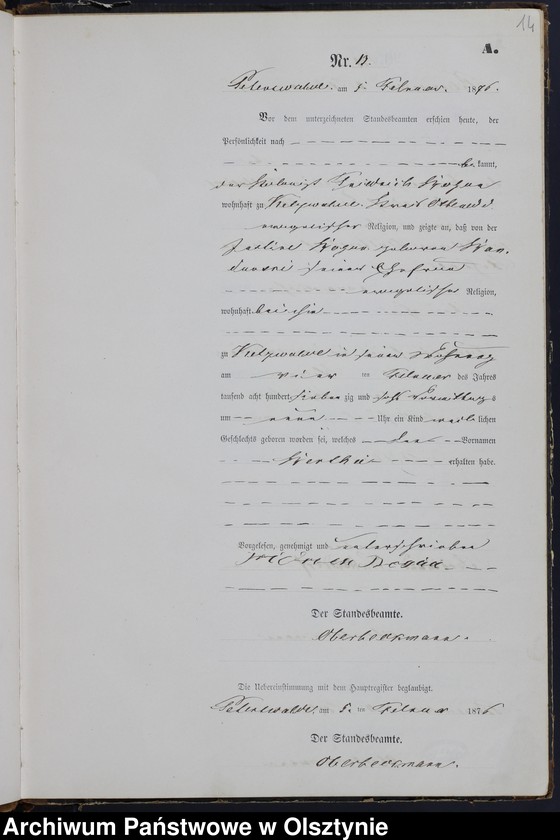 14
A.
Nr. 12.
Peterswalde am 5ten Februar 1876.
Vor dem unterzeichneten Standesbeamten erschien heute, der
Persönlichkeit nach
bekannt,
der Kolonist Friedrich
wohnhaft zu
evangelischer Religion, und zeigte an, daß von der
geboren
seiner Ehefrau
evangelischer Religion,
wohnhaft bei ihm
zu in seiner Wohnung
am vier ten Februar des Jahres
tausend acht hundert siebenzig und sechs Vormittags
um neun Uhr ein Kind weiblichen
Geschlechts geboren worden sei, welches den Vornamen
Bertha erhalten habe.
Vorgelesen, genehmigt und unterschrieben
Der Standesbeamte.
Oberbeckmann.
Die Uebereinstimmung mit dem Hauptregister beglaubigt.
Peterswalde am 5. ten Februar 1876.
Der Standesbeamte.
Oberbeckmann.
Archiwum Państwowe w Olsztynie